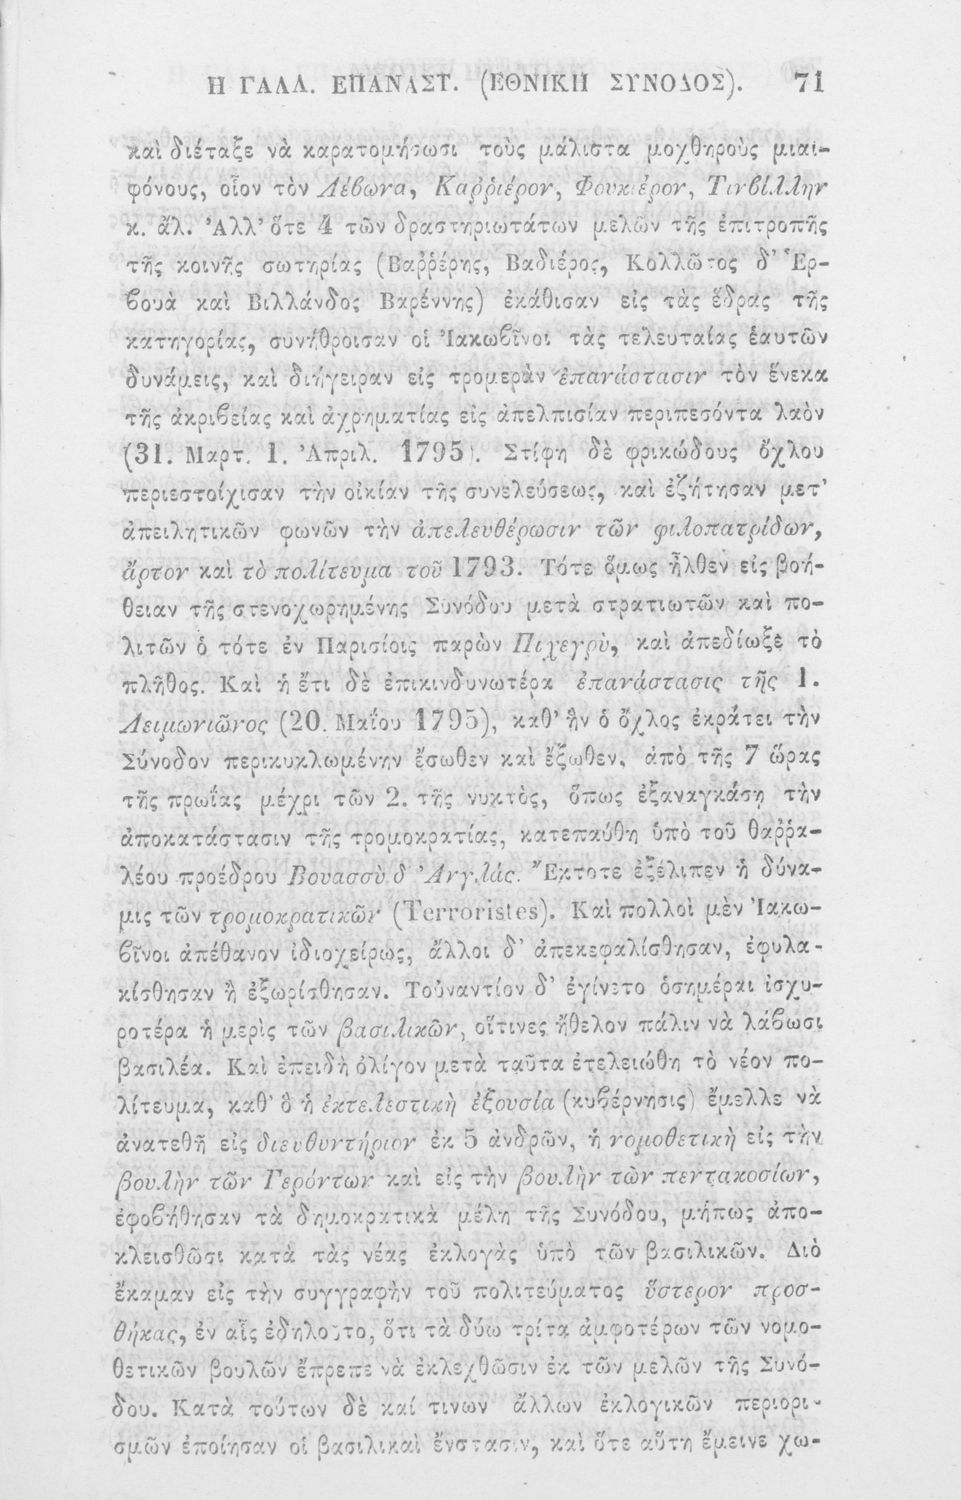 Η ΓΑΛΛ. ΕΠΑΝΑΣΤ. (ΕΘΝΙΚΗ ΣΥΝΟΔΟΣ). 71
καὶ διέταξε νὰ καρατομήσωσι τοὺς μάλιστα μοχθηροὺς μιαι-
φόνους, οἷον τὸν Λέβωνα, Καῤῥιέρον, Φουκιέρον, Τινβίλλην
κ. ἄλ. Ἀλλ' ὅτε 4 τῶν δραστηριωτάτων μελῶν τῆς ἐπιτροπῆς
τῆς κοινῆς σωτηρίας (Βαῤῥέρης, Βαδιέρος, Κολλῶτος δ' Ἑρ-
βουὰ καὶ Βιλλάνδος Βαρέννης) ἐκάθισαν εἰς τὰς ἕδρας τῆς
κατηγορίας, συνήθροισαν οἱ Ἰακωβῖνοι τὰς τελευταίας ἑαυτῶν
δυνάμεις, καὶ διήγειραν εἰς τρομερὰν ἐπανάστασιν τὸν ἕνεκα
τῆς ἀκριβείας καὶ ἀχρηματίας εἰς ἀπελπισίαν περιπεσόντα λαὸν
(31. Μαρτ. 1. Ἀπριλ. 1795). Στίφη δὲ φρικώδους ὄχλου
περιεστοίχισαν τὴν οἰκίαν τῆς συνελεύσεως, καὶ ἐζήτησαν μετ'
ἀπειλητικῶν φωνῶν τὴν ἀπελευθέρωσιν τῶν φιλοπατρίδων,
ἄρτον καὶ τὸ πολίτευμα τοῦ 1793. Τότε ὅμως ἦλθεν εἰς βοή-
θειαν τῆς στενοχωρημένης Συνόδου μετὰ στρατιωτῶν καὶ πο-
λιτῶν ὁ τότε ἐν Παρισίοις παρὼν Πιχεγρὺ, καὶ ἀπεδίωξε τὸ
πλῆθος. Καὶ ἡ ἔτι δὲ ἐπικινδυνωτέρα ἐπανάστασις τῆς 1.
Λειμωνιῶνος (20. Μαΐου 1795), καθ' ἣν ὁ ὄχλος ἐκράτει τὴν
Σύνοδον περικυκλωμένην ἔσωθεν καὶ ἔξωθεν, ἀπὸ τῆς 7 ὥρας
τῆς πρωΐας μέχρι τῶν 2. τῆς νυκτὸς, ὅπως ἐξαναγκάσῃ τὴν
ἀποκατάστασιν τῆς τρομοκρατίας, κατεπαύθη ὑπὸ τοῦ θαῤῥα-
λέου προέδρου Βουασσὺ δ' Ἀνγλάς. Ἔκτοτε ἐξέλιπεν ἡ δύνα-
μις τῶν τρομοκρατικῶν (Terroristes). Καὶ πολλοὶ μὲν Ἰακω-
βῖνοι ἀπέθανον ἰδιοχείρως, ἄλλοι δ' ἀπεκεφαλίσθησαν, ἐφυλα-
κίσθησαν ἢ ἐξωρίσθησαν. Τοὐναντίον δ' ἐγίνετο ὁσημέραι ἰσχυ-
ροτέρα ἡ μερὶς τῶν βασιλικῶν, οἵτινες ἤθελον πάλιν νὰ λάβωσι
βασιλέα. Καὶ ἐπειδὴ ὀλίγον μετὰ ταῦτα ἐτελειώθη τὸ νέον πο-
λίτευμα, καθ' ὃ ἡ ἐκτελεστικὴ ἐξουσία (κυβέρνησις) ἔμελλε νὰ
ἀνατεθῇ εἰς διευθυντήριον ἐκ 5 ἀνδρῶν, ἡ νομοθετικὴ εἰς τὴν
βουλὴν τῶν Γερόντων καὶ εἰς τὴν βουλὴν τῶν πεντακοσίων,
ἐφοβήθησαν τὰ δημοκρατικὰ μέλη τῆς Συνόδου, μήπως ἀπο-
κλεισθῶσι κατὰ τὰς νέας ἐκλογὰς ὑπὸ τῶν βασιλικῶν. Διὸ
ἔκαμαν εἰς τὴν συγγραφὴν τοῦ πολιτεύματος ὕστερον προσ-
θήκας, ἐν αἷς ἐδηλοῦτο, ὅτι τὰ δύω τρίτα ἀμφοτέρων τῶν νομο-
θετικῶν βουλῶν ἔπρεπε νὰ ἐκλεχθῶσιν ἐκ τῶν μελῶν τῆς Συνό-
δου. Κατὰ τούτων δὲ καί τινων ἄλλων ἐκλογικῶν περιορι-
σμῶν ἐποίησαν οἱ βασιλικαὶ ἔνστασιν, καὶ ὅτε αὕτη ἔμεινε χω-